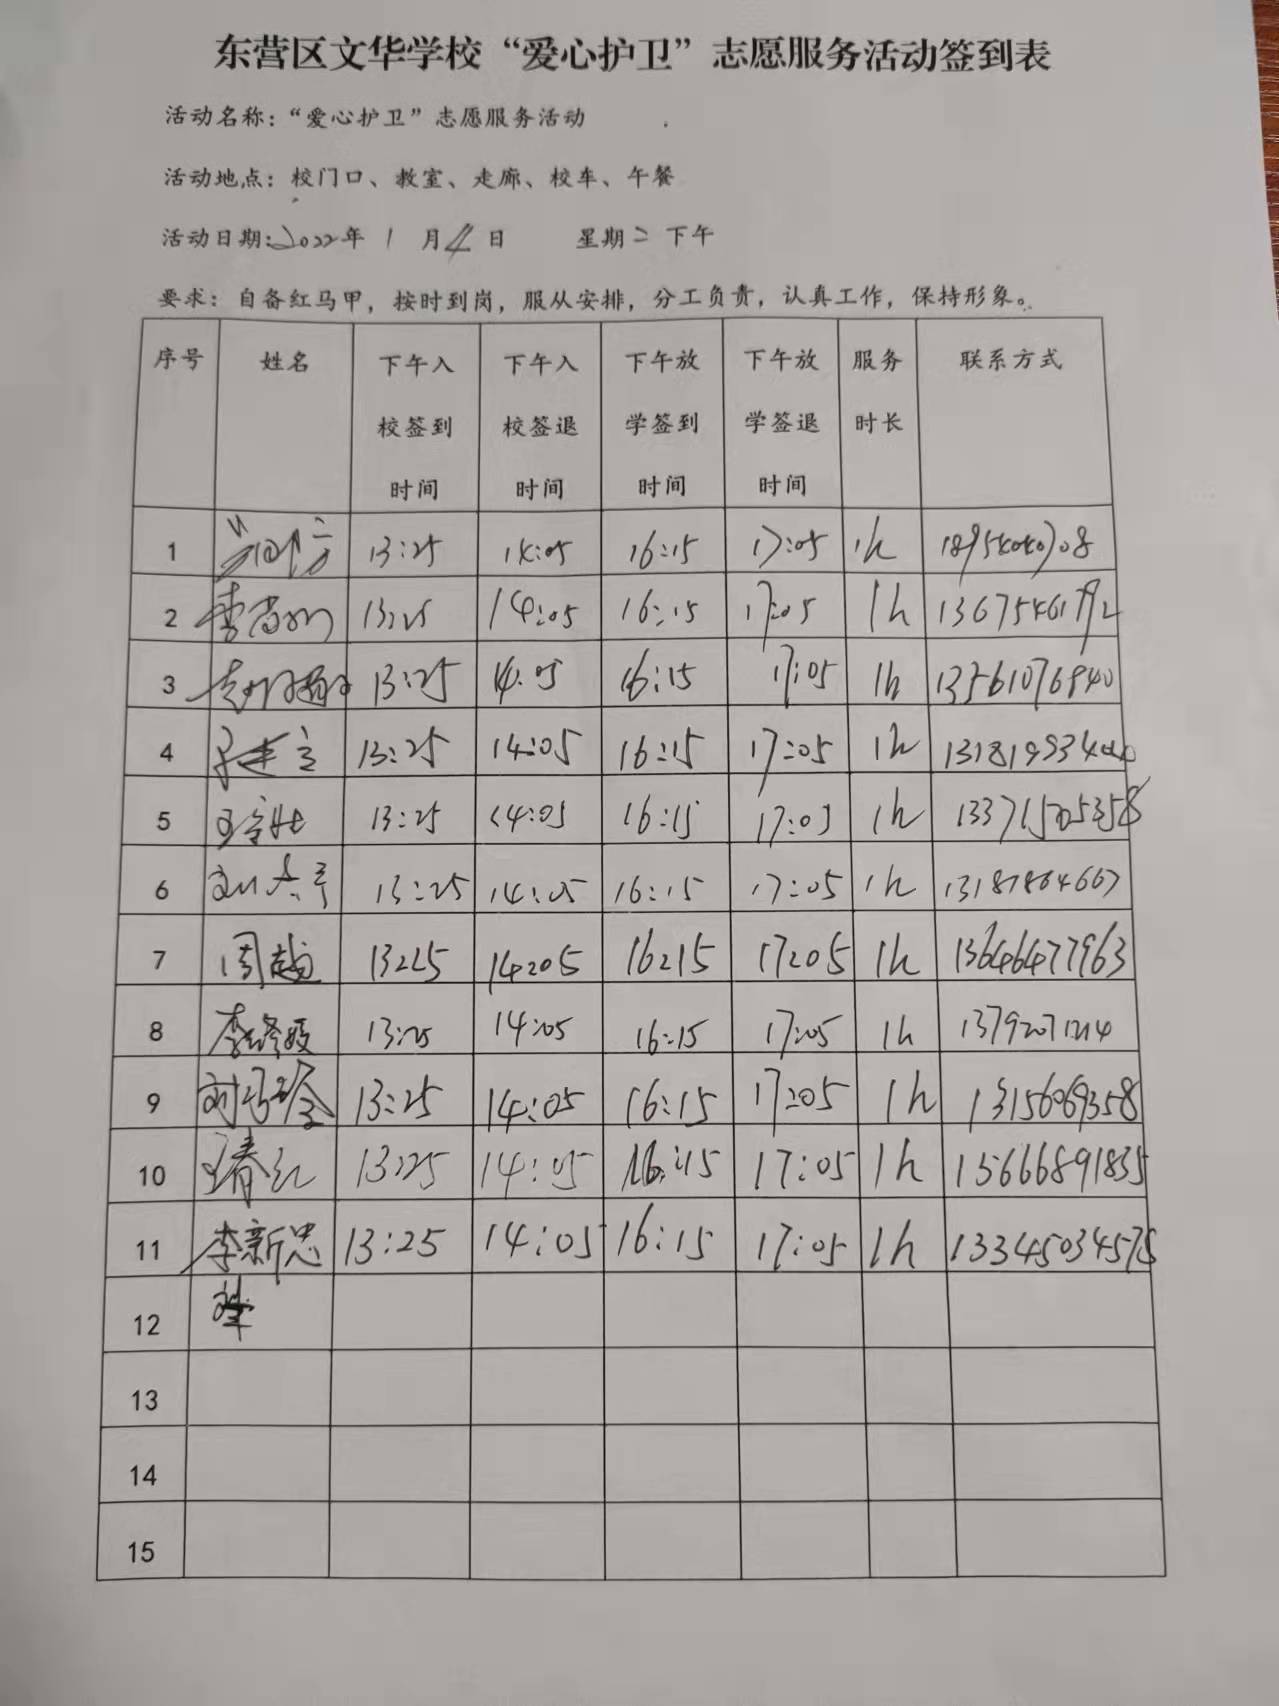 东营区文华学校“爱心护卫”志愿服务活动签到表
活动名称：“爱心护卫”志愿服务活动
活动地点：校门口、教室、走廊、校车、午餐
活动日期:2022年 1 月 4 日 星期二 下午
要求：自备红马甲，按时到岗，服从安排，分工负责，认真工作，保持形象。
序号 姓名 下午入校签到时间 下午入校签退时间 下午放学签到时间 下午放学签退时间 服务时长 联系方式
1 13:25 14:05 16:15 17:05 1h
2 13:25 14:05 16:15 17:05 1h 13675461792
3 13:25 14:05 16:15 17:05 1h 13561076940
4 13:25 14:05 16:15 17:05 1h
5 13:25 14:05 16:15 17:05 1h
6 13:25 14:05 16:15 17:05 1h 13181864667
7 周越 13:25 14:05 16:15 17:05 1h 13646477963
8 13:25 14:05 16:15 17:05 1h 13792071214
9 13:25 14:05 16:15 17:05 1h 13156069358
10 王春红 13:25 14:05 16:15 17:05 1h 15666891835
11 李新忠 13:25 14:05 16:15 17:05 1h 13345034575
12
13
14
15